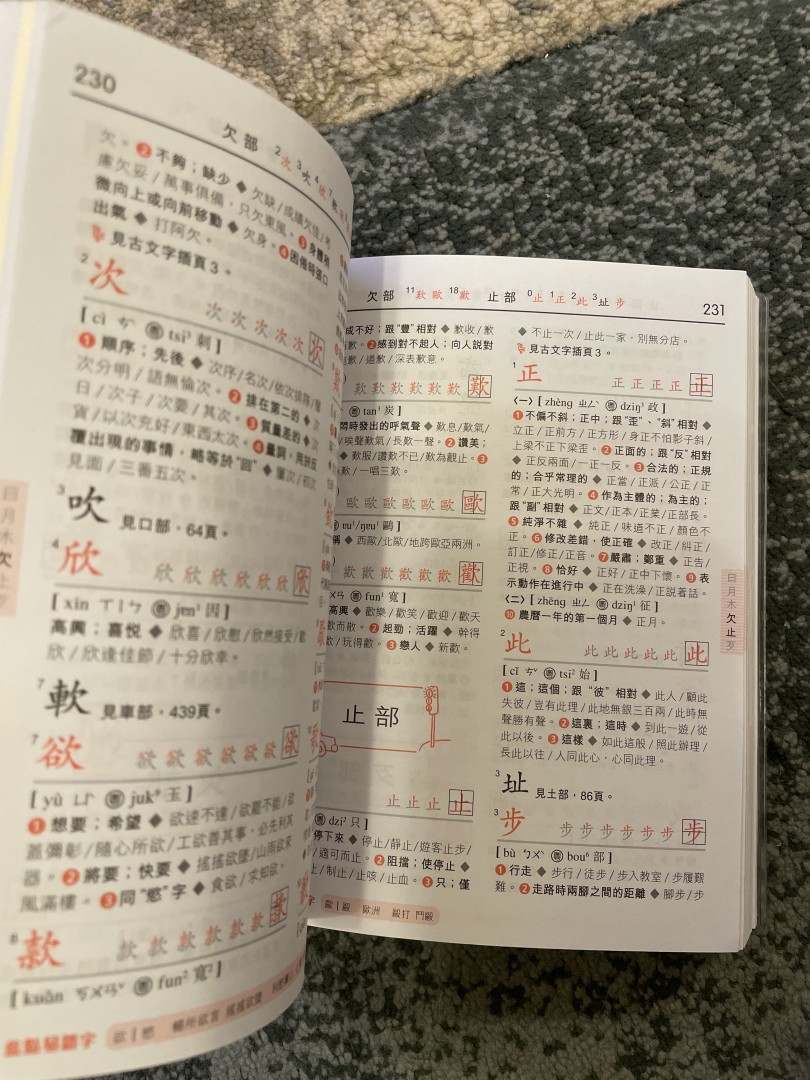 230
欠部 2次 3吹 4欣 7軟
欠。❷不夠；缺少◆欠缺/成績欠佳/考
慮欠妥/萬事俱備，只欠東風。❸身體稍
微向上或向前移動◆欠身。❹因倦時張口
出氣◆打阿欠。
見古文字插頁3。
2次 次次次次次次
[cì ㄘˋ 粵 tsi³ 刺]
❶順序；先後◆次序/名次/依次排隊/層
次分明/語無倫次。❷排在第二的◆次
日/次子/次要/其次。❸質量差的◆次
貨/以次充好/東西太次。❹量詞，用於反
覆出現的事情，略等於"回"◆屢次/初次
見面/三番五次。
3吹 見口部，64頁。
4欣 欣欣欣欣欣欣欣
[xīn ㄒㄧㄣ 粵 jɐn¹ 因]
高興；喜悅◆欣喜/欣慰/欣然接受/歡
欣/欣逢佳節/十分欣幸。
7軟 見車部，439頁。
7欲 欲欲欲欲欲欲
[yù ㄩˋ 粵 juk⁹ 玉]
❶想要；希望◆欲速不達/欲罷不能/欲
蓋彌彰/隨心所欲/工欲善其事，必先利其
器。❷將要；快要◆搖搖欲墜/山雨欲來
風滿樓。❸同"慾"字◆食欲/求知欲。
8款 款款款款款款
[kuǎn ㄎㄨㄢˇ 粵 fun² 寬²]
易點易錯字 欲|慾 暢所欲言 搖搖欲墜
日月木欠止歹
欠部 11歎歐 18歡 止部 0止 1正 2此 3址步
231
成不好；跟"豐"相對◆歉收/歉
歉。❷感到對不起人；向人說對
歉/道歉/深表歉意。
歎歎歎歎歎歎歎
粵 tan³ 炭]
悶時發出的呼氣聲◆歎息/歎氣/
唉聲歎氣/長歎一聲。❷讚美；
◆歎服/讚歎不已/歎為觀止。❸
歎/一唱三歎。
歐歐歐歐歐歐歐
粵 ɐu¹/ŋɐu¹ 鷗]
稱◆西歐/北歐/地跨歐亞兩洲。
歡歡歡歡歡歡
ㄢ 粵 fun¹ 寬]
高興◆歡樂/歡笑/歡迎/歡天
歡而散。❷起勁；活躍◆幹得
歡/玩得歡。❸戀人◆新歡。
止部
止止止止
粵 dzi² 只]
停下來◆停止/靜止/遊客止步/
/適可而止。❷阻擋；使停止◆
止/制止/止咳/止血。❸只；僅
字 歐|毆 歐洲 毆打 鬥毆
◆不止一次/止此一家，別無分店。
見古文字插頁3。
1正 正正正正正
㈠[zhèng ㄓㄥˋ 粵 dziŋ³ 政]
❶不偏不斜；正中；跟"歪"、"斜"相對◆
立正/正前方/正方形/身正不怕影子斜/
上梁不正下梁歪。❷正面的；跟"反"相對
◆正反兩面/一正一反。❸合法的；正規
的；合乎常理的◆正當/正派/公正/正
常/正大光明。❹作為主體的；為主的；
跟"副"相對◆正文/正本/正業/正部長。
❺純淨不雜◆純正/味道不正/顏色不
正。❻修改差錯，使正確◆改正/糾正/
訂正/修正/正音。❼嚴肅；鄭重◆正告/
正視。❽恰好◆正好/正中下懷。❾表
示動作在進行中◆正在洗澡/正説着話。
㈡[zhēng ㄓㄥ 粵 dziŋ¹ 征]
❿農曆一年的第一個月◆正月。
2此 此此此此此此
[cǐ ㄘˇ 粵 tsi² 始]
❶這；這個；跟"彼"相對◆此人/顧此
失彼/豈有此理/此地無銀三百兩/此時無
聲勝有聲。❷這裏；這時◆到此一遊/從
此以後。❸這樣◆如此這般/照此辦理/
長此以往/人同此心，心同此理。
3址 見土部，86頁。
3步 步步步步步步步
[bù ㄅㄨˋ 粵 bou⁶ 部]
❶行走◆步行/徒步/步入教室/步履艱
難。❷走路時兩腳之間的距離◆腳步/步
日月木欠止歹